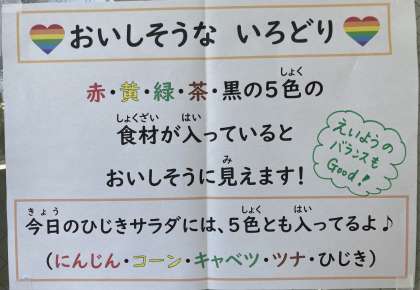 おいしそうな いろどり
赤・黄・緑・茶・黒の5色の
食材が入っていると
おいしそうに見えます!
えいようの
バランスも
Good!
今日のひじきサラダには、5色とも入ってるよ♪
(にんじん・コーン・キャベツ・ツナ・ひじき)